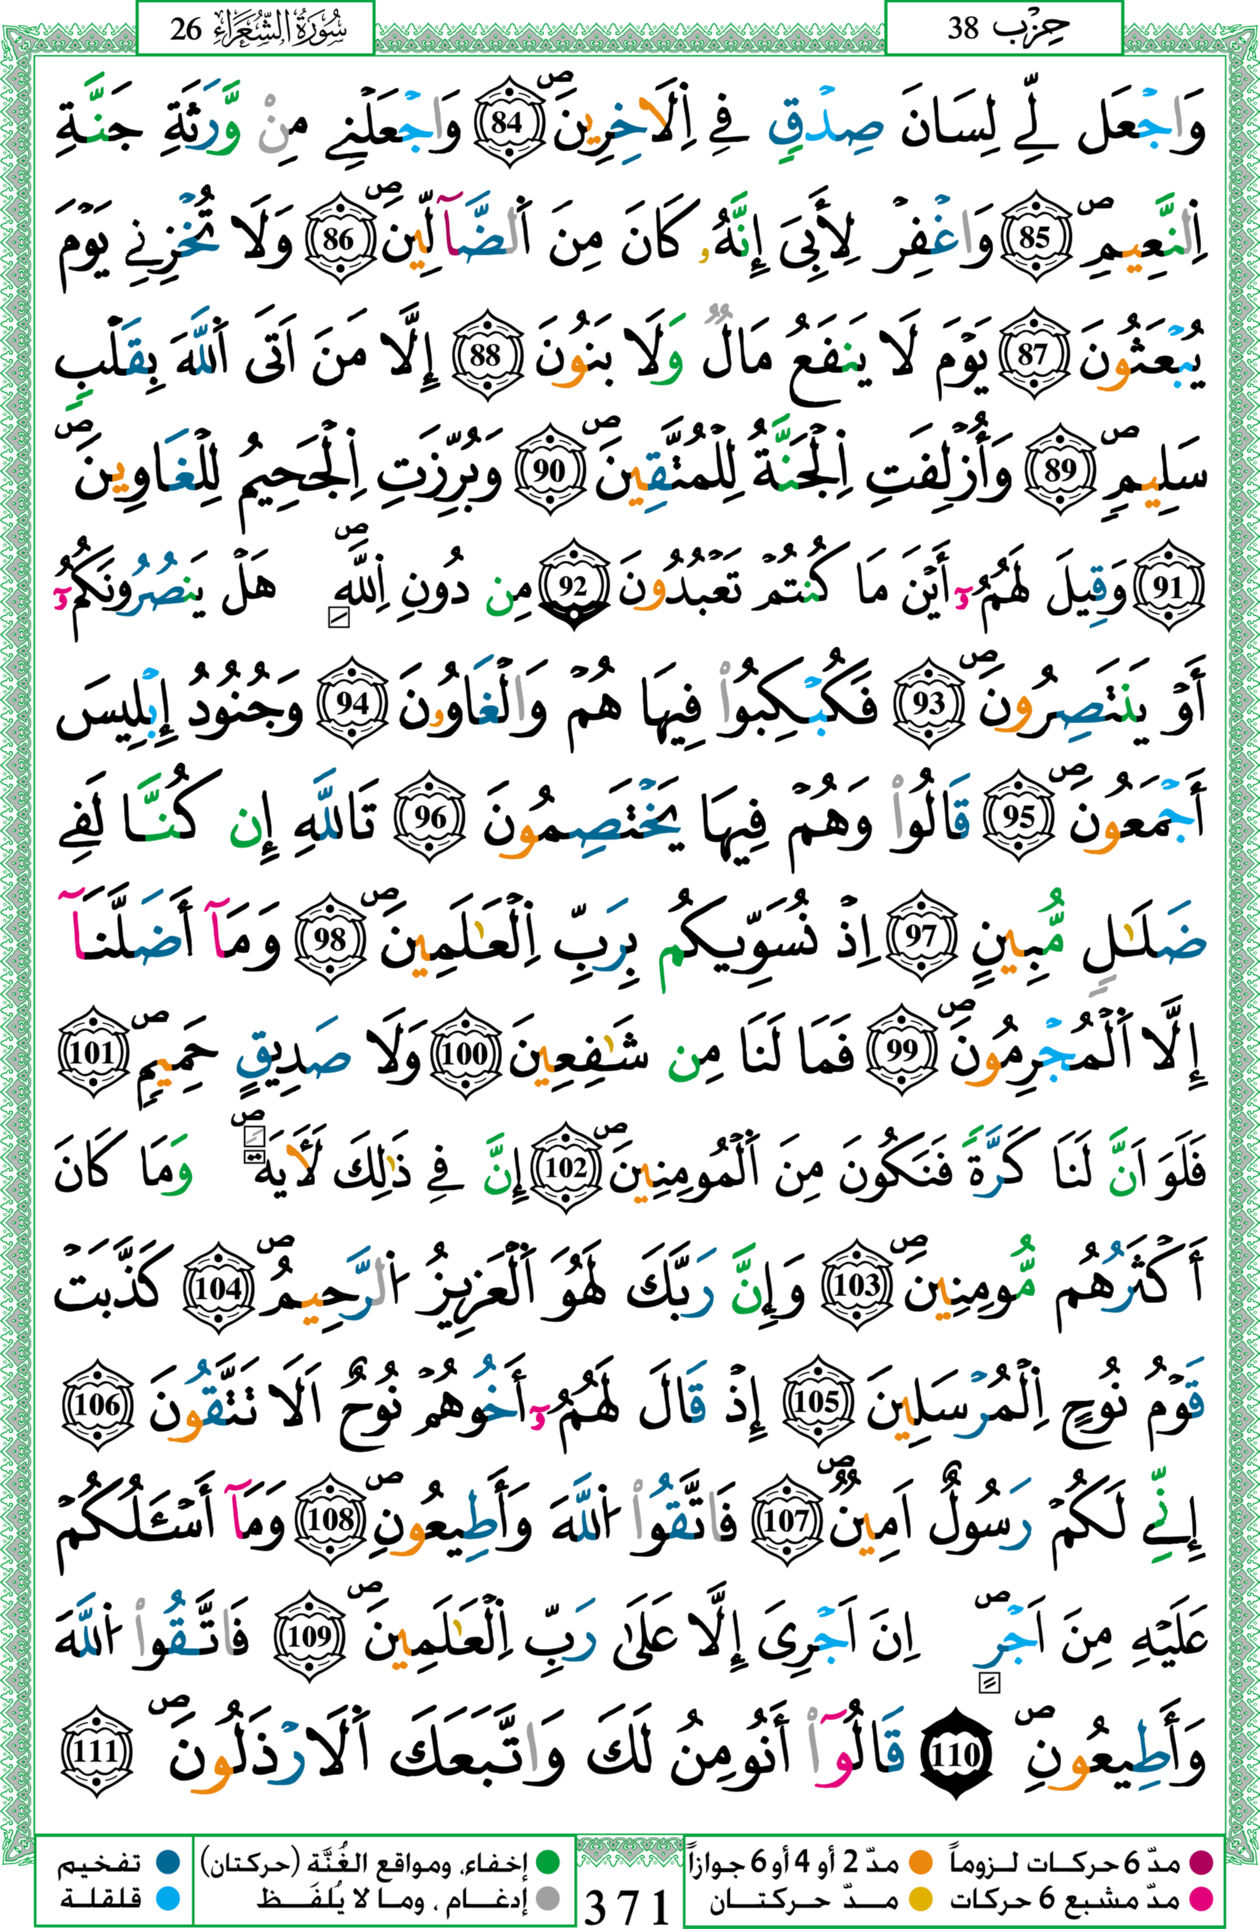 سُورَةُ الشُّعَرَاءِ 26
حِزْب 38
وَاجْعَل لِّے لِسَانَ صِدْقٖ فِے اِ۬لَاخِرِينَۖ 84 وَاجْعَلْنِے مِنْ وَّرَثَةِ جَنَّةِ
اِ۬لنَّعِيمِۖ 85 وَاغْفِرْ لِأَبِىَ إِنَّهُۥ كَانَ مِنَ اَ۬لضَّآلِّينَۖ 86 وَلَا تُخْزِنِے يَوْمَ
يُبْعَثُونَ 87 يَوْمَ لَا يَنفَعُ مَالٞ وَلَا بَنُونَ 88 إِلَّا مَنَ اَتَى اَ۬للَّهَ بِقَلْبٖ
سَلِيمٖۖ 89 وَأُزْلِفَتِ اِ۬لْجَنَّةُ لِلْمُتَّقِينَۖ 90 وَبُرِّزَتِ اِ۬لْجَحِيمُ لِلْغَاوِينَۖ
91 وَقِيلَ لَهُمُۥٓ أَيْنَ مَا كُنتُمْ تَعْبُدُونَ 92 مِن دُونِ اِ۬للَّهِۖ هَلْ يَنصُرُونَكُمُۥٓ
أَوْ يَنتَصِرُونَۖ 93 فَكُبْكِبُواْ فِيهَا هُمْ وَالْغَاوُۥنَ 94 وَجُنُودُ إِبْلِيسَ
أَجْمَعُونَۖ 95 قَالُواْ وَهُمْ فِيهَا يَخْتَصِمُونَ 96 تَاللَّهِ إِن كُنَّا لَفِے
ضَلَٰلٖ مُّبِينٍ 97 اِذْ نُسَوِّيكُم بِرَبِّ اِ۬لْعَٰلَمِينَۖ 98 وَمَآ أَضَلَّنَآ
إِلَّا اَ۬لْمُجْرِمُونَۖ 99 فَمَا لَنَا مِن شَٰفِعِينَ 100 وَلَا صَدِيقٍ حَمِيمٖۖ 101
فَلَوَ اَنَّ لَنَا كَرَّةٗ فَنَكُونَ مِنَ اَ۬لْمُومِنِينَۖ 102 إِنَّ فِے ذَٰلِكَ لَأٓيَةٗۖ وَمَا كَانَ
أَكْثَرُهُم مُّومِنِينَۖ 103 وَإِنَّ رَبَّكَ لَهُوَ اَ۬لْعَزِيزُ اُ۬لرَّحِيمُۖ 104 كَذَّبَتْ
قَوْمُ نُوحٍ اِ۬لْمُرْسَلِينَ 105 إِذْ قَالَ لَهُمُۥٓ أَخُوهُمْ نُوحٌ اَلَا تَتَّقُونَ 106
إِنِّے لَكُمْ رَسُولٌ اَمِينٞۖ 107 فَاتَّقُواْ اُ۬للَّهَ وَأَطِيعُونِۖ 108 وَمَآ أَسْـَٔلُكُمْ
عَلَيْهِ مِنَ اَجْرٍۖ اِنَ اَجْرِىَ إِلَّا عَلَىٰ رَبِّ اِ۬لْعَٰلَمِينَۖ 109 فَاتَّقُواْ اُ۬للَّهَ
وَأَطِيعُونِۖ 110 قَالُوٓاْ أَنُومِنُ لَكَ وَاتَّبَعَكَ اَ۬لَارْذَلُونَۖ 111
مدّ 6 حركات لـزوماً مدّ 2 أو 4 أو 6 جوازاً إخفاء، ومواقع الغُنَّة (حركتان) تفخيم
مدّ مشبع 6 حركات مــدّ حـركتــان إدغـام ، ومـا لا يُلفَـظ قلقلـة
371